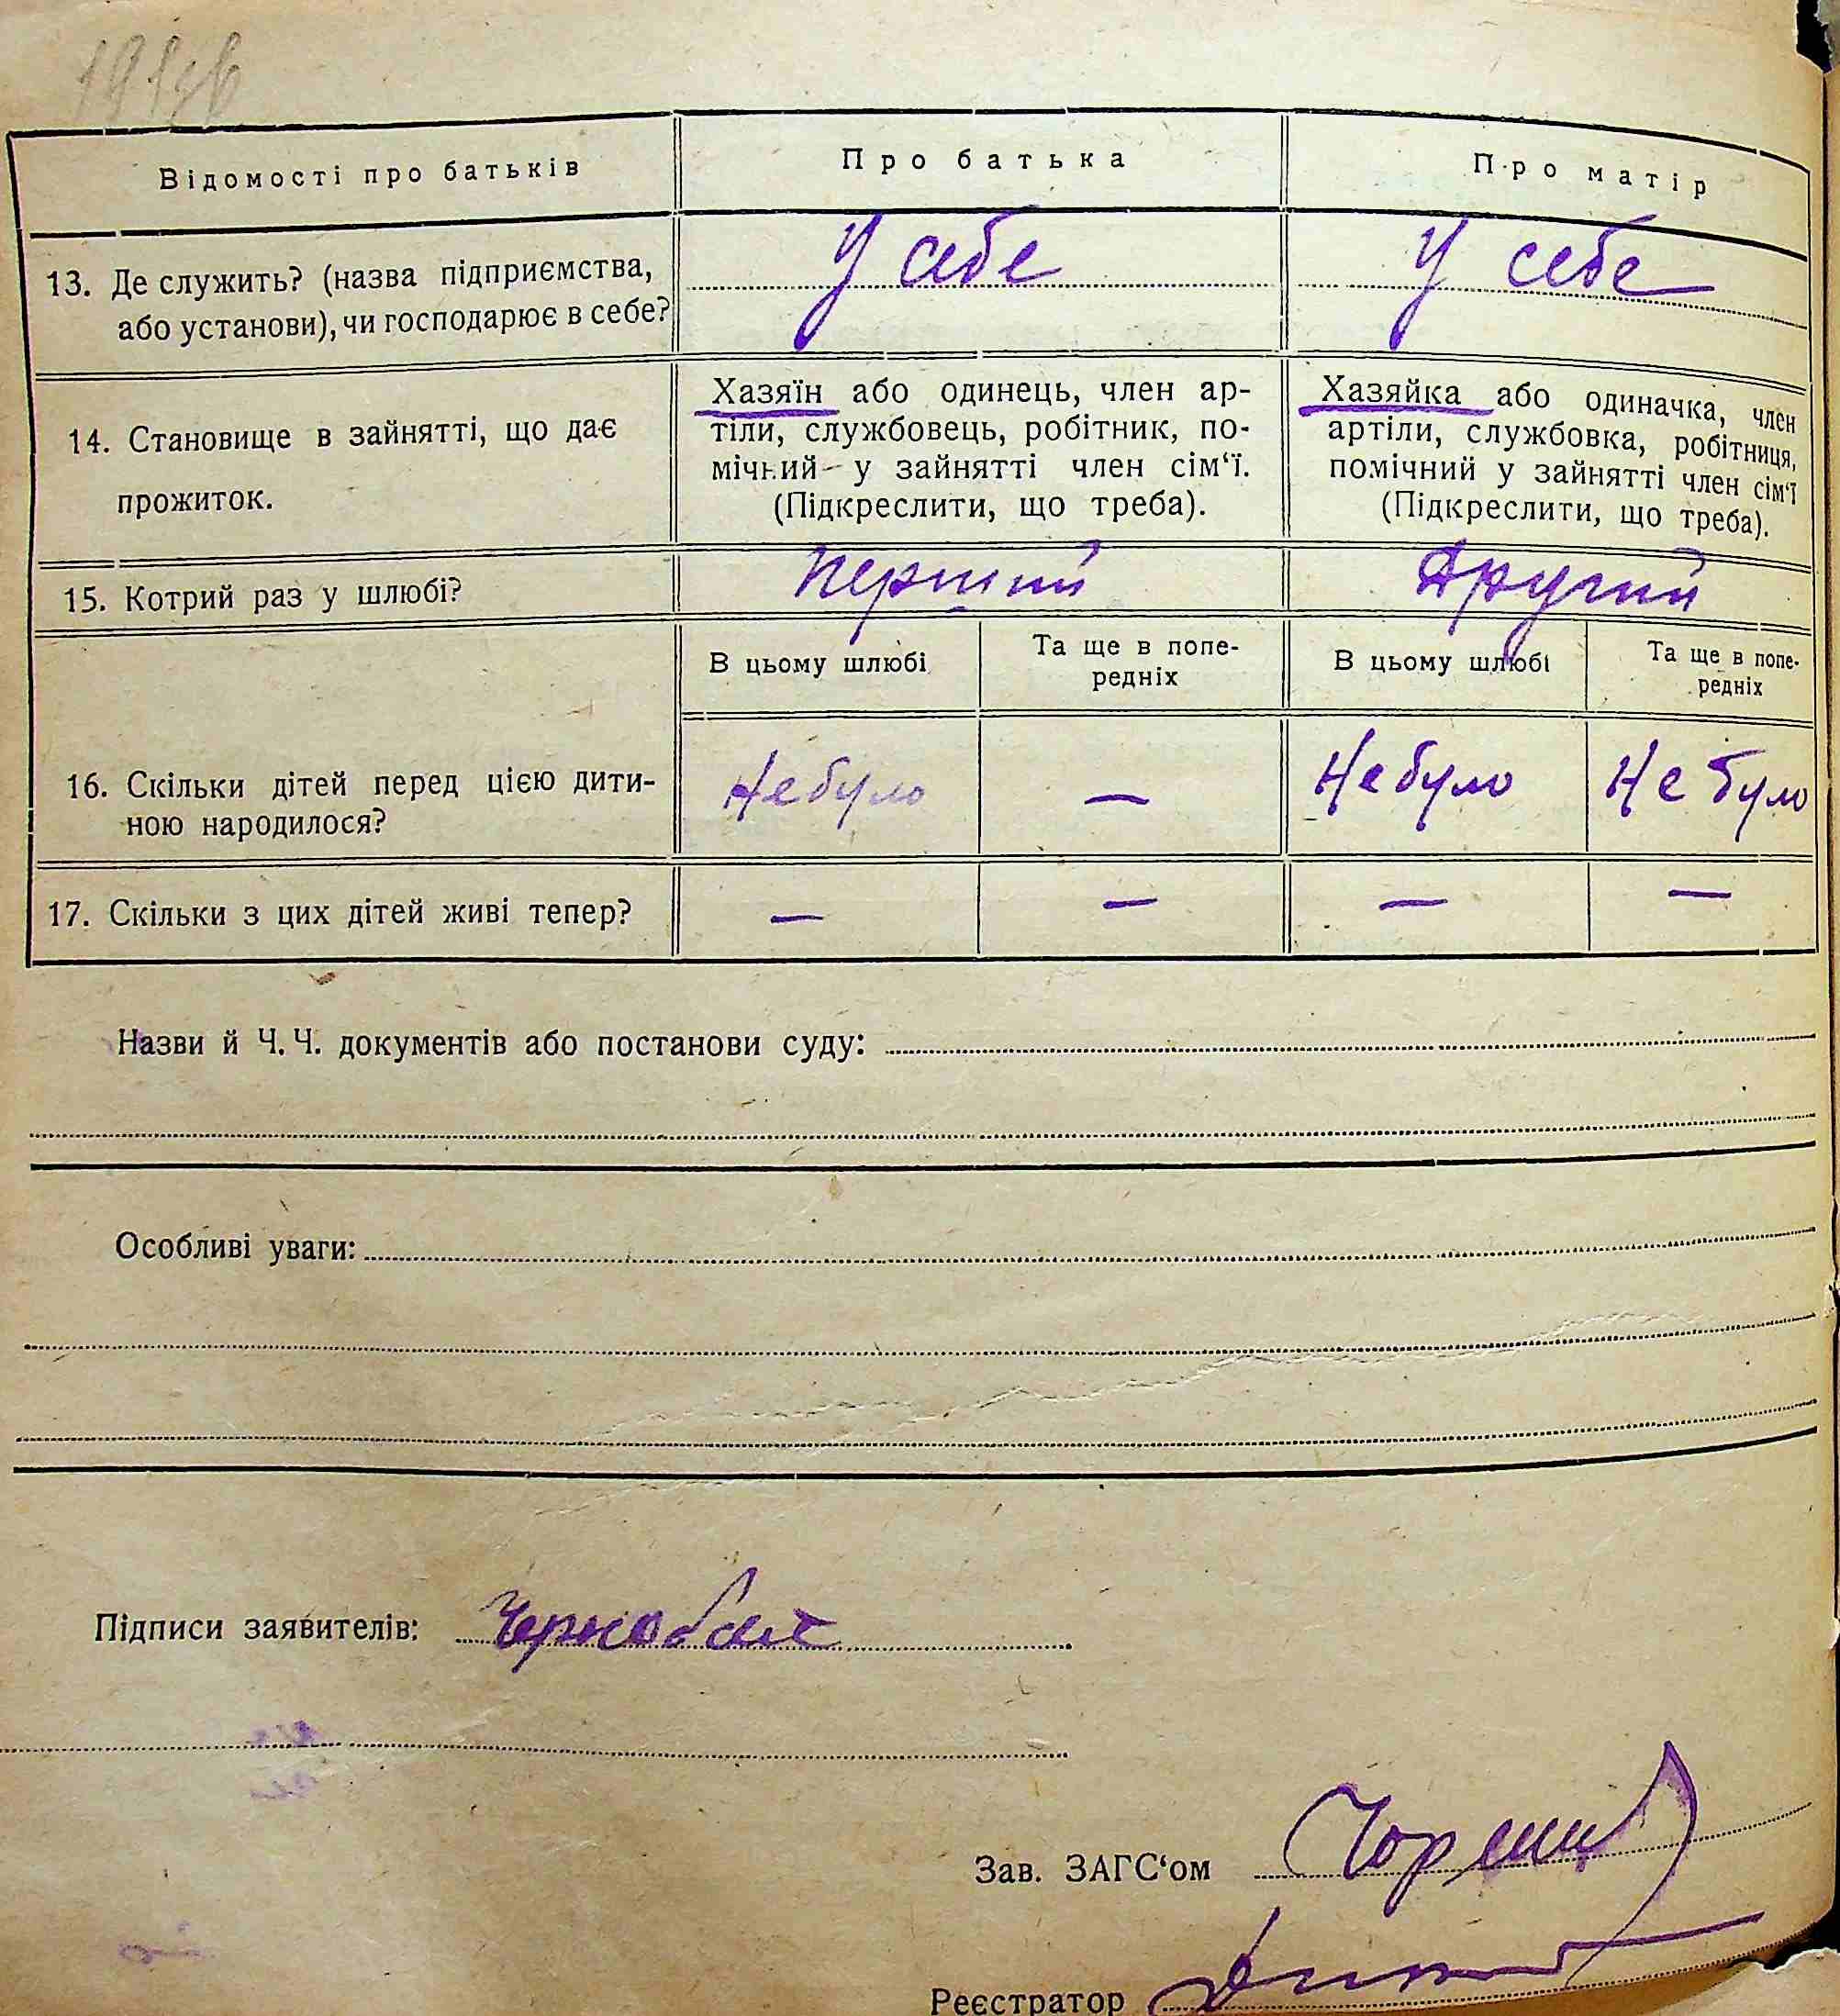 Відомості про батьків
Про батька
Про матір
13. Де служить? (назва підприємства,
або установи), чи господарює в себе?
У себе
У себе
14. Становище в зайнятті, що дає
прожиток.
Хазяїн або одинець, член ар-
тіли, службовець, робітник, по-
мічний у зайнятті член сім‘ї.
(Підкреслити, що треба).
Хазяйка або одиначка, член
артіли, службовка, робітниця,
помічний у зайнятті член сім‘ї
(Підкреслити, що треба).
15. Котрий раз у шлюбі?
Перший
Другий
В цьому шлюбі
Та ще в попе-
редніх
В цьому шлюбі
Та ще в попе-
редніх
16. Скільки дітей перед цією дити-
ною народилося?
Небуло
—
Не було
Не було
17. Скільки з цих дітей живі тепер?
—
—
—
—
Назви й Ч. Ч. документів або постанови суду:
Особливі уваги:
Підписи заявителів:
Зав. ЗАГС‘ом
Реєстратор